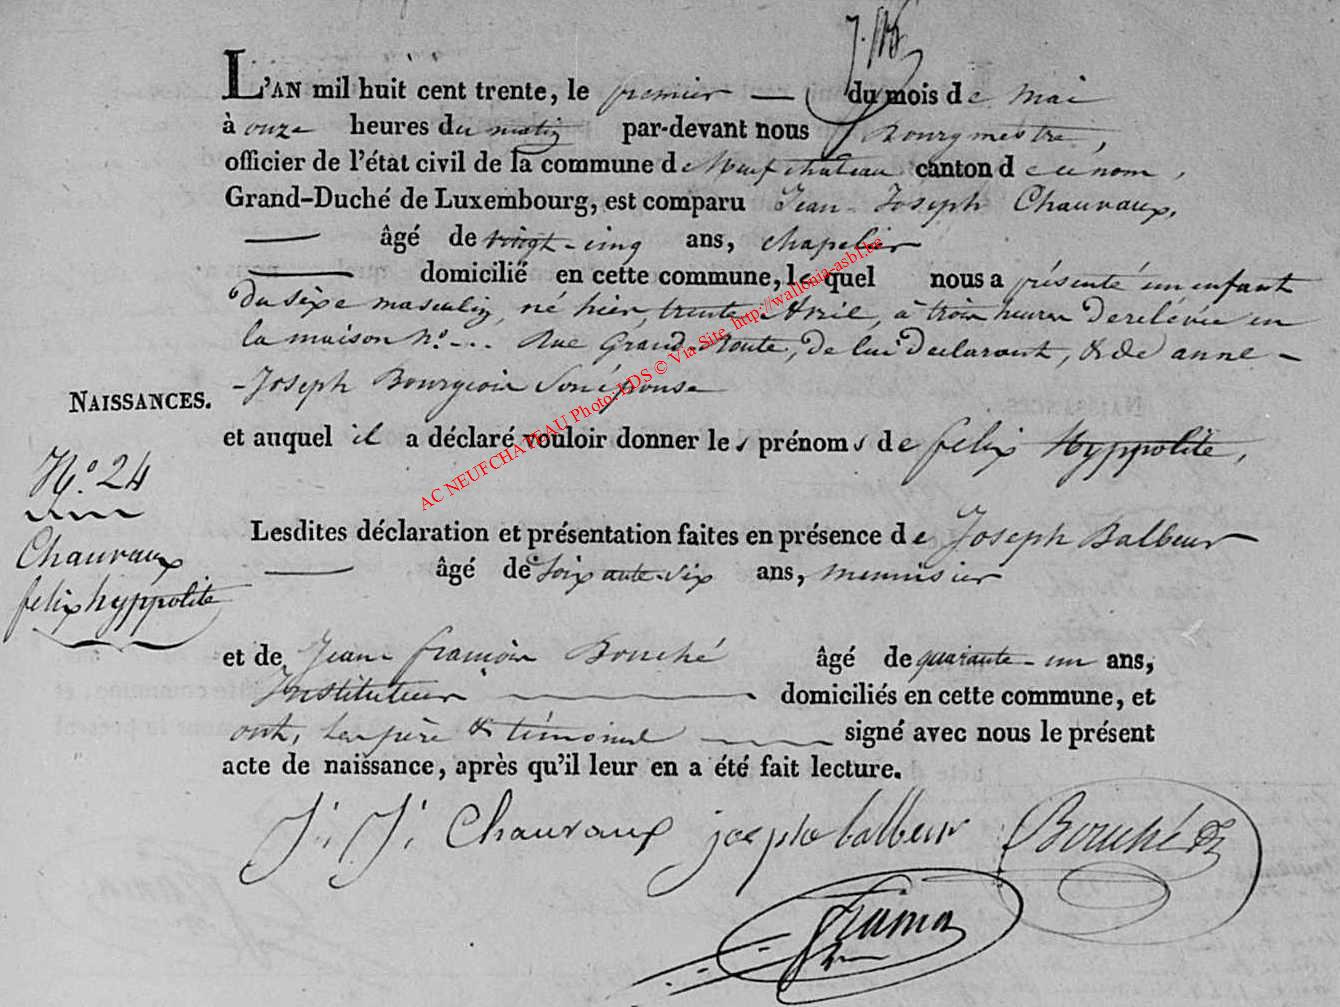 L'AN mil huit cent trente, le premier — du mois de Mai
à onze heures du matin par-devant nous Bourgmestre,
officier de l'état civil de la commune de Neufchateau canton de ce nom,
Grand-Duché de Luxembourg, est comparu Jean-Joseph Chauvaux,
— âgé de vingt-cinq ans, chapelier
— domicilié en cette commune, lequel nous a présenté un enfant
du sexe masculin, né hier, trente Avril, à trois heures de relévée en
la maison No. ... Rue Grand-Route, de lui déclarant, & de anne-
-Joseph Bourgeois Son épouse
NAISSANCES.
et auquel il a déclaré vouloir donner les prénoms de felix Hyppolite,
No. 24
Chauvaux
felix hyppolite
Lesdites déclaration et présentation faites en présence de Joseph Balbeur
— âgé de Soixante-Six ans, menuisier
et de Jean-françois Bouché âgé de quarante-un ans,
Instituteur — domiciliés en cette commune, et
ont, les père & témoins — signé avec nous le présent
acte de naissance, après qu'il leur en a été fait lecture.
J. J. Chauvaux joseph balbeur Bouché
AC NEUFCHATEAU Photo: LDS © Via Site http://wallonia-asbl.be